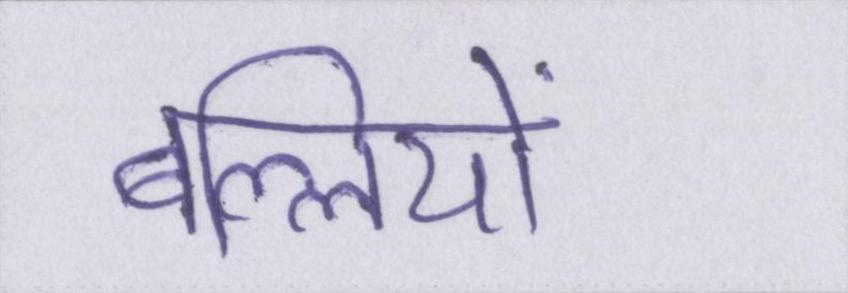 बल्लियों